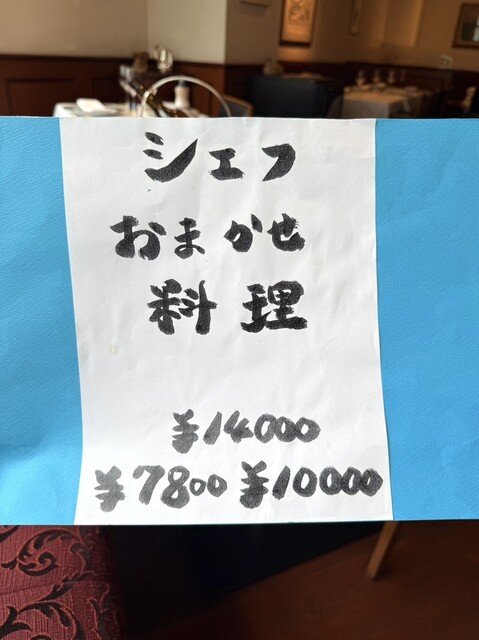 シェフ
おまかせ
料理
¥14000
¥7800 ¥10000